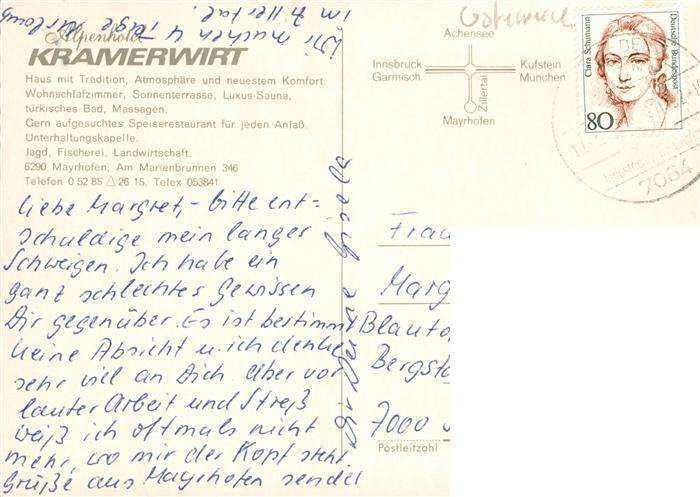 Alpenhotel
KRAMERWIRT
Haus mit Tradition, Atmosphäre und neuestem Komfort.
Wohnschlafzimmer, Sonnenterrasse, Luxus-Sauna,
türkisches Bad, Massagen.
Gern aufgesuchtes Speiserestaurant für jeden Anlaß.
Unterhaltungskapelle.
Jagd, Fischerei, Landwirtschaft.
6290 Mayrhofen, Am Marienbrunnen 346
Telefon 0 52 85 △ 26 15. Telex 053841
Liebe Margret, - bitte ent=
schuldige mein langes
Schweigen. Ich habe ein
ganz schlechtes Gewissen
Dir gegenüber. Es ist bestimmt
keine Absicht u. ich denke
sehr viel an Dich aber vor
lauter Arbeit und Streß
weiß ich oftmals nicht
mehr, wo mir der Kopf steht.
Grüße aus Mayrhofen sendet
Wir machen 4 Tage Urlaub
im Zillertal.
Achensee
Innsbruck
Garmisch
Kufstein
München
Zillertal
Mayrhofen
Clara Schumann
Deutsche Bundespost
80
7064
Frau
Marg
Blauto
Bergst
7000
Postleitzahl